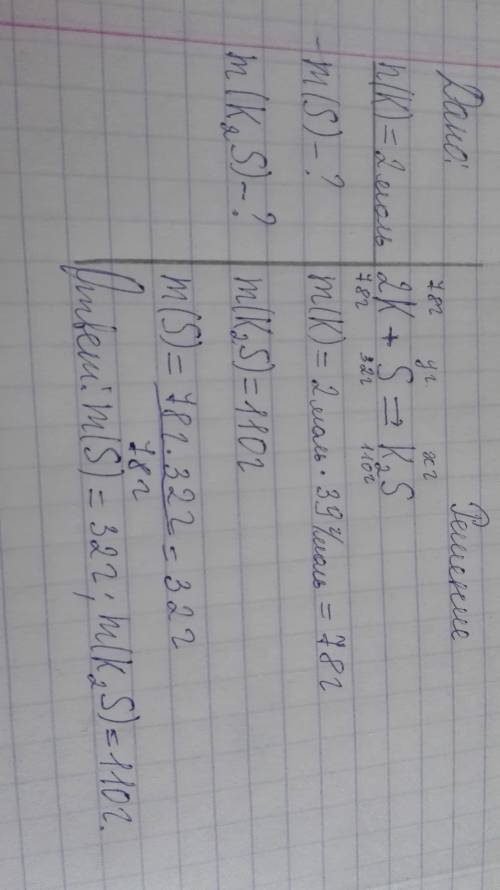 Дано:
n(K) = 2 моль
m(S) - ?
m(K₂S) - ?
Решение
78г уг хг
2K + S = K₂S
78г 32г 110г
m(K) = 2 моль · 39 г/моль = 78г
m(K₂S) = 110г
m(S) = 78г · 32г = 32г
78г
Ответ: m(S) = 32г; m(K₂S) = 110г.